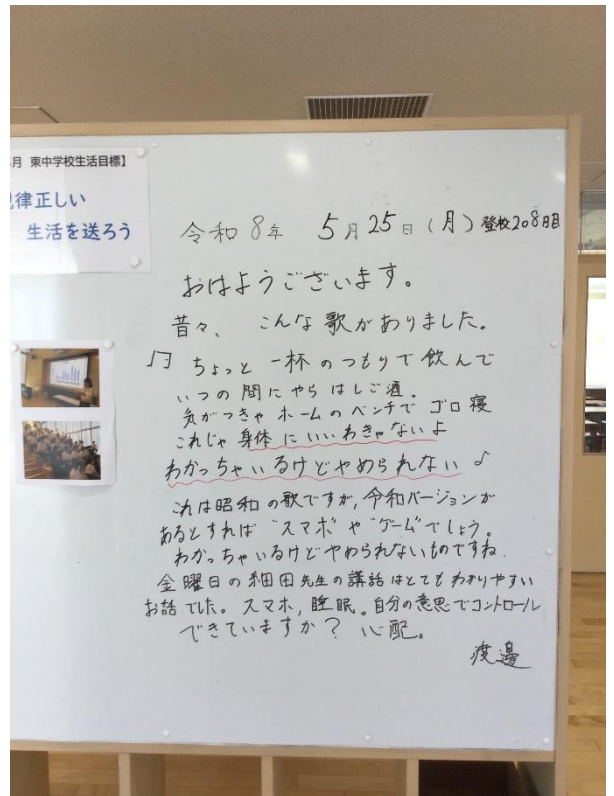 月 東中学校生活目標】
律正しい
生活を送ろう
令和8年 5月25日(月)登校208日目
おはようございます。
昔々、こんな歌がありました。
♪ ちょっと一杯のつもりで飲んで
いつの間にやらはしご酒。
気がつきゃホームのベンチでゴロ寝
これじゃ身体にいいわきゃないよ
わかっちゃいるけどやめられない♪
これは昭和の歌ですが,令和バージョンが
あるとすれば“スマホ”や“ゲーム”でしょう。
わかっちゃいるけどやめられないものですね.
金曜日の細田先生の講話はとてもわかりやすい
お話でした。スマホ,睡眠。自分の意思でコントロール
できていますか?心配。
渡邊